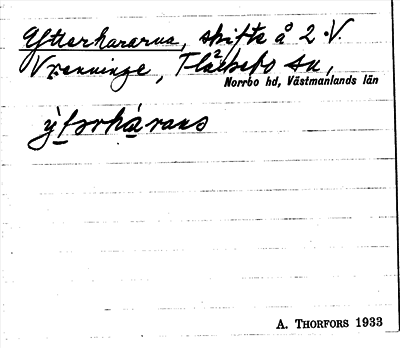 Ytterhararna, skifte å 2 V.
Vrenninge, Fläckebo sn,
Norrbo hd, Västmanlands län
A. THORFORS 1933